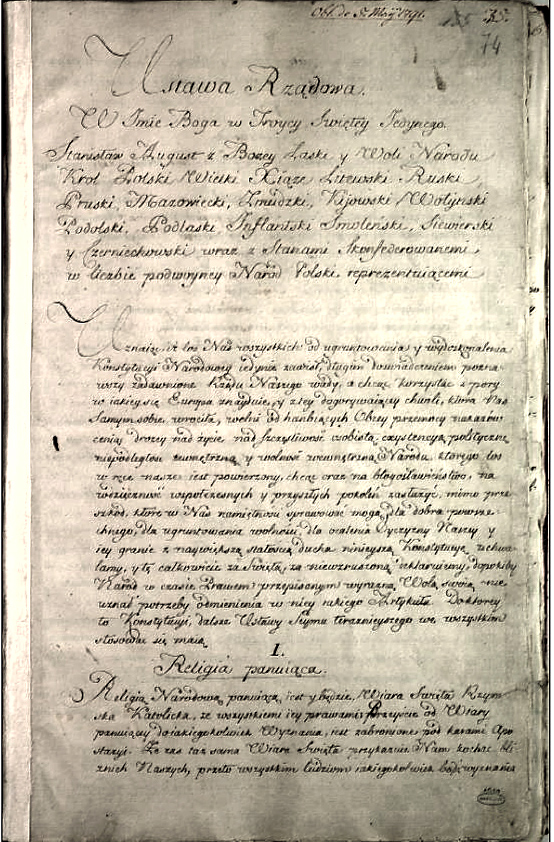 Obl. de 5. Maij 1791.
155 35.
74
Ustawa Rządowa.
W Imie Boga w Troycy Swiętey Jedynego.
Stanisław August z Bożey Łaski y Woli Narodu
Krol Polski Wielki Xiąże Litewski Ruski
Pruski, Mazowiecki, Zmudzki, Kijowski Wołynski
Podolski, Podlaski Inflantski Smoleński, Siewierski
y Czerniechowski wraz z Stanami Skonfederowanemi,
w liczbie podwoyney Naród Polski reprezentuiącemi
Uznaiąc, iż los Nas wszystkich od ugruntowania y wydoskonalenia
Konstytucyi Narodowey iedynie zawisł, długim doswiadczeniem pozna-
wszy zadawnione Rządu Naszego wady, a chcąc korzystać z pory
w iakiey się Europa znayduie, y z tey dogorywaiącey chwili, która Nas
samym sobie wrociła, wolni od hanbiących Obcey przemocy nakazów
ceniąc drozey nad życie, nad szczęsliwość osobistą, exystencyą polityczną
niepodległość zewnętrzną y wolność wewnętrzną Narodu, ktorego los
w ręce nasze iest powierzony, chcąc oraz na błogosławieństwo, na
wdzięczność wspołczesnych y przyszłych pokoleń zasłużyć, mimo prze-
szkód, które w Nas namiętności sprawować mogą, dla dobra powsze-
chnego, dla ugruntowania wolności, dla ocalenia Oyczyzny Naszey y
iey granic z naywiększą stałością ducha ninieyszą Konstytucyę uchwa-
lamy, y tę całkowicie za swiętą, za niewzruszoną deklaruiemy, dopokiby
Naród w czasie Prawem przepisanym wyrazną Wolą swoią nie-
uznał potrzeby odmienienia w niey iakiego Artykułu. Do ktorey
to Konstytucyi, dalsze Ustawy Seymu teraznieyszego we wszystkim
stosować się maią
I.
Religia panuiąca.
Religią Narodową panuiącą iest y będzie Wiara Swięta Rzym-
ska Katolicka, ze wszystkiemi iey prawami; Przeyście od Wiary
panuiącey do iakiegokolwiek Wyznania, iest zabronione pod karami Apo-
stazyi. Ze zas taż sama Wiara Swięta przykazuie Nam kochać bli-
znich Naszych, przeto wszystkim ludziom iakiegokolwiek bądź wyznania